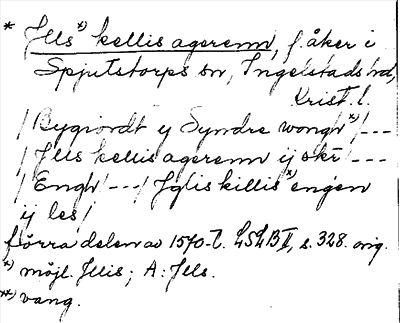 * Jlls*) kellis agerenn, f. åker i
Spjutstorps sn, Ingelstads hd,
Krist. l.
/Bygiordt y Syndre wongh**)/---
/Jlls kellis agerenn ij skr/ ---
/Engh/---/Jglis killis*) engen
ij les/
förra delen av 1570-t. LSLB II, s. 328. orig.
*) möjl. Jllis; A: Jlls.
**) vang.